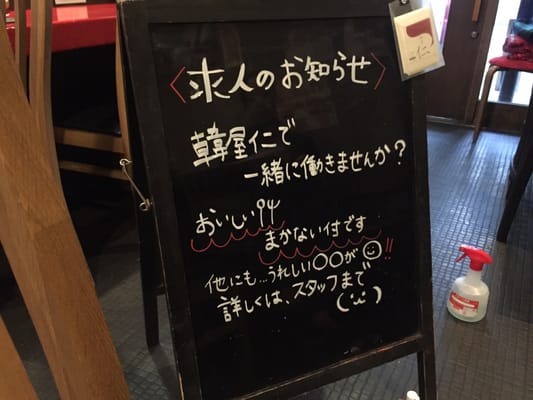 〈求人のお知らせ〉
韓屋仁で
一緒に働きませんか?
おいしい
まかない付です
他にも…うれしい〇〇が!!
詳しくは、スタッフまで
仁